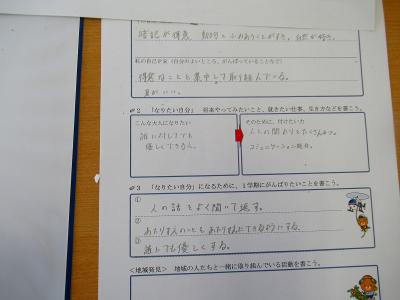 暗記が得意 動物とふれあうことがすき。自然が好き。
私の自己PR(自分のよいところ、がんばっていることなど)
得意なことも集中して取り組んでいる。
耳がいい。
2 「なりたい自分」 将来やってみたいこと、就きたい仕事、生き方などを書こう。
こんな大人になりたい
誰に対しても
優しくできる人。
そのために、付けたい力
人との関わりをたくさんもつ。
コミュニケーション能力。
3 「なりたい自分」になるために、1学期にがんばりたいことを書こう。
① 人の話をよく聞いて返す。
② あたり前のことをあたり前にできるようにする。
③ 誰にでも優しくする。
<地域発見> 地域の人たちと一緒に取り組んでいる活動を書こう。